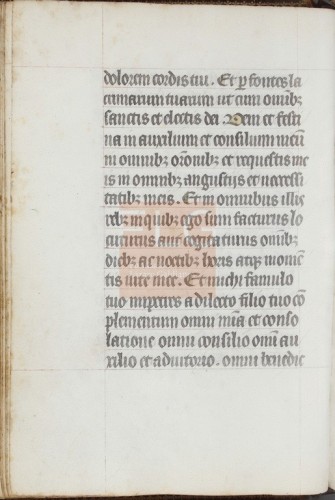 dolorem cordis tui. Et p fontes la
crimarum tuarum ut cum omībꝫ
sanctis et electis dei. Veni et festi
na in auxilium et consilium meū
in omnibꝫ orōnibꝫ et requestis me
is in omnibꝫ angustijs et necessi
tatibꝫ meis. Et in omnibus illis
rebꝫ in quibꝫ ego sum facturus lo
cuturus aut cogitaturus omībꝫ
diebꝫ ac noctibꝫ horis atqꝫ momē
tis vite mee. Et michi famulo
tuo impetres a dilecto filio tuo cō
plementum omni mīa et conso
latione omni consilio omī au
xilio et adiutorio. omni benedic